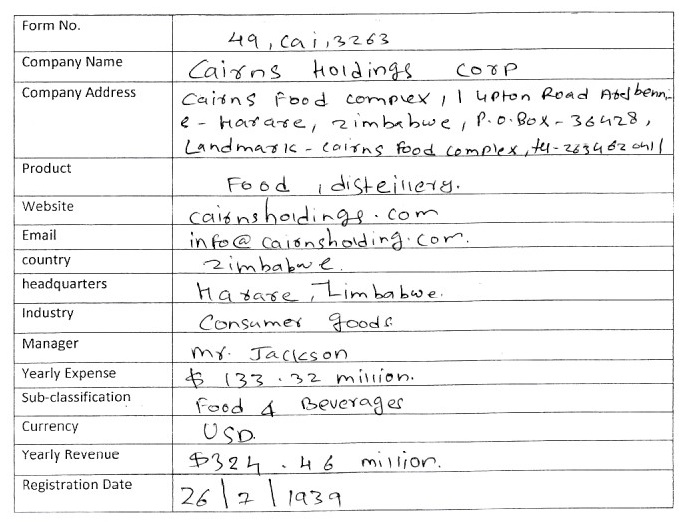 Form No.
49, Cai, 3263
Company Name
Cairns Holdings Corp
Company Address
Cairns Food complex, 1 Upton Road Ardbenni-
e - Harare, zimbabwe, P.O.Box - 36428,
Landmark - cairns Food complex, tel - 263462
Product
Food, disteillery.
Website
cairnsholdings.com
Email
info@cairnsholding.com.
country
zimbabwe.
headquarters
Harare, Zimbabwe.
Industry
Consumer goods
Manager
Mr. Jackson
Yearly Expense
$ 133.32 million.
Sub-classification
Food & Beverages
Currency
USD.
Yearly Revenue
$324.46 million.
Registration Date
26/2/1939